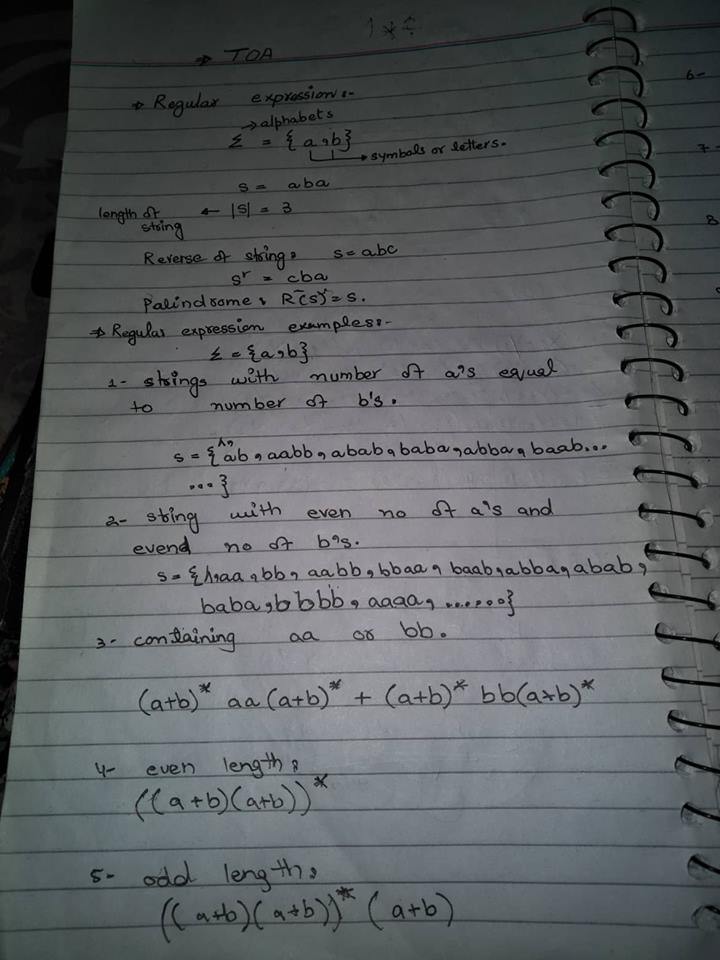 1 * ÷
→ TOA
→ Regular expression:-
→ alphabets
Σ = { a, b }
→ symbols or letters.
s = aba
length of string ← |s| = 3
Reverse of string, s = abc
sʳ = cba
Palindrome, R(s)ʳ = s.
⇒ Regular expression examples:-
Σ = {a, b}
1- strings with number of a's equal
to number of b's.
s = {λ, ab, aabb, abab, baba, abba, baab...
...}
2- string with even no of a's and
evend no of b's.
s = {λ, aa, bb, aabb, bbaa, baab, abba, abab,
baba, bbbb, aaaa, .......}
3- containing aa or bb.
(a+b)* aa (a+b)* + (a+b)* bb(a+b)*
4- even length,
((a+b)(a+b))*
5- odd length,
((a+b)(a+b))* (a+b)
6-
7-
8